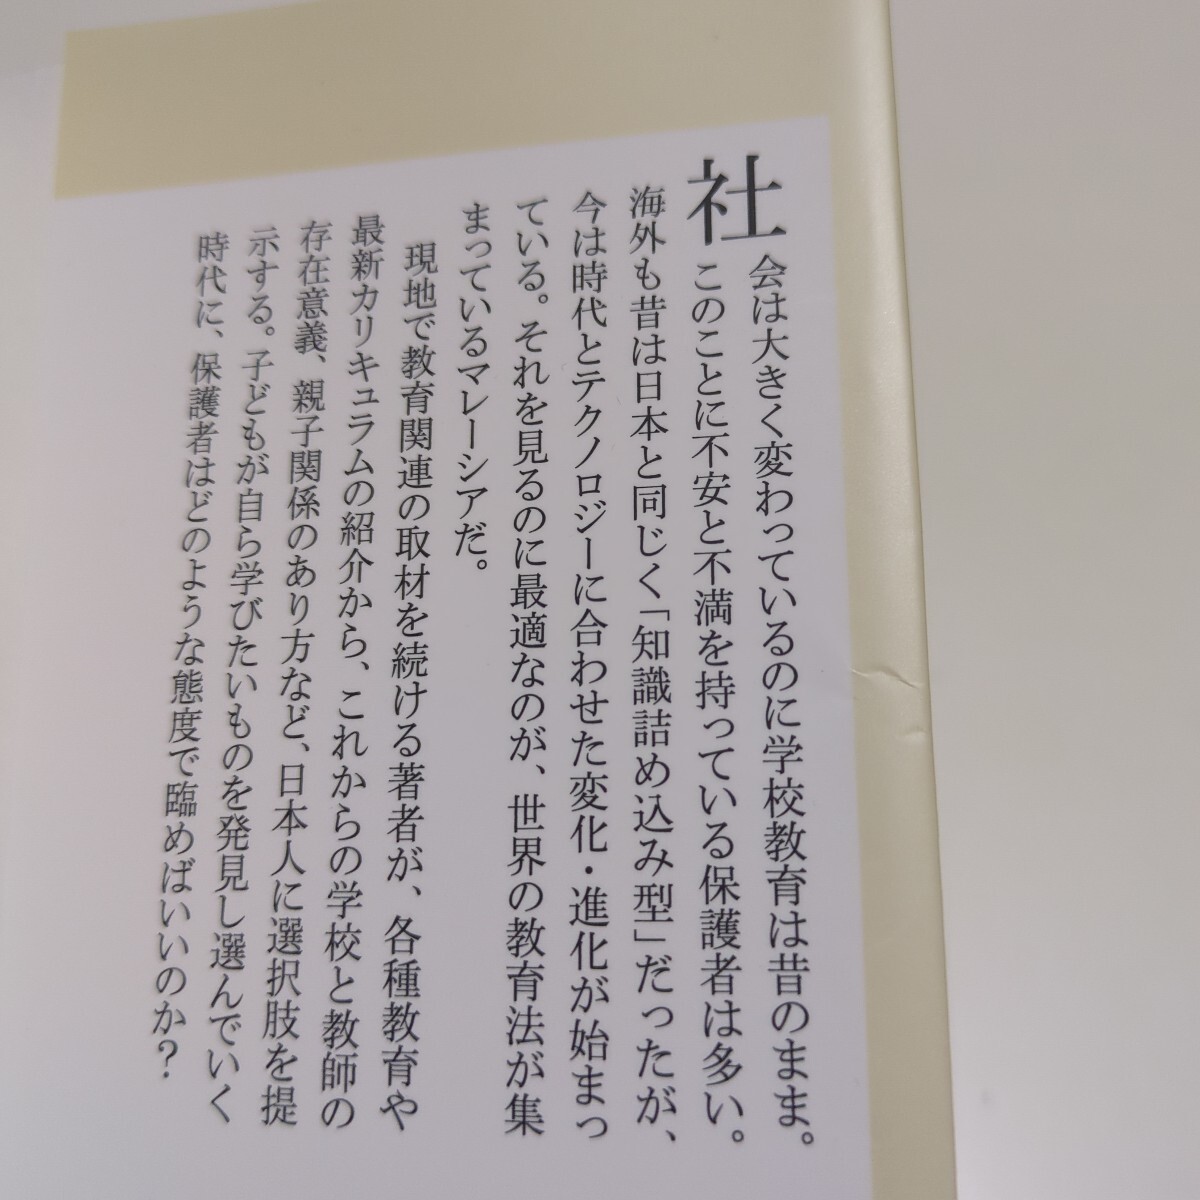 社会は大きく変わっているのに学校教育は昔のまま。
このことに不安と不満を持っている保護者は多い。
海外も昔は日本と同じく「知識詰め込み型」だったが、
今は時代とテクノロジーに合わせた変化・進化が始まっ
ている。それを見るのに最適なのが、世界の教育法が集
まっているマレーシアだ。
現地で教育関連の取材を続ける著者が、各種教育や
最新カリキュラムの紹介から、これからの学校と教師の
存在意義、親子関係のあり方など、日本人に選択肢を提
示する。子どもが自ら学びたいものを発見し選んでいく
時代に、保護者はどのような態度で臨めばいいのか?